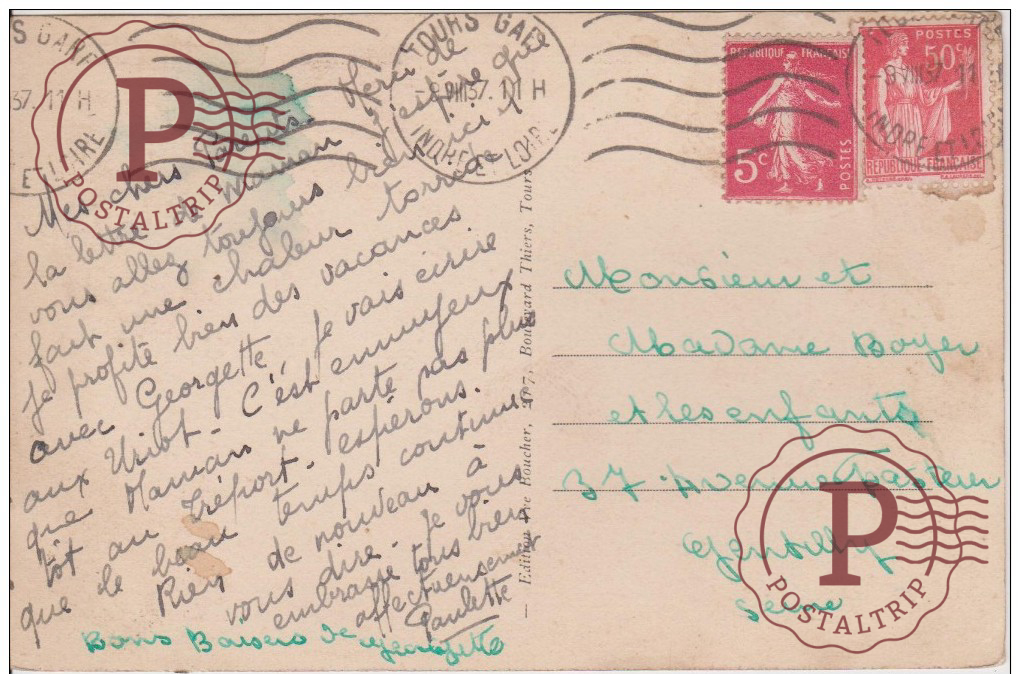 S GARE
37. 11 H
E LOIRE
TOURS GARE
-8 VIII 37. 11 H
INDRE ET LOIRE
-8 VIII 37 11
INDRE ET LO
REPUBLIQUE FRANÇAISE
5c
POSTES
POSTES
50c
REPUBLIQUE FRANÇAISE
P
POSTALTRIP
Mes chers
Merci de
la lettre de Maman
j'espère que
vous allez toujours bien
ici il
fait une chaleur torride
Je profite bien des vacances
avec Georgette. Je vais écrire
aux Uriot - C'est ennuyeux
que Maman ne parte pas plus
tôt au Tréport. espérons
que le beau temps continue.
Rien de nouveau à
vous dire. Je vous
embrasse tous bien
affectueusement
Paulette
Bons Baisers de Georgette
— Edition Boucher, Boulevard Thiers, Tours
Monsieur et
Madame Boyer
et les enfants
37 Avenue Pasteur
Gentilly
Seine
P
POSTALTRIP